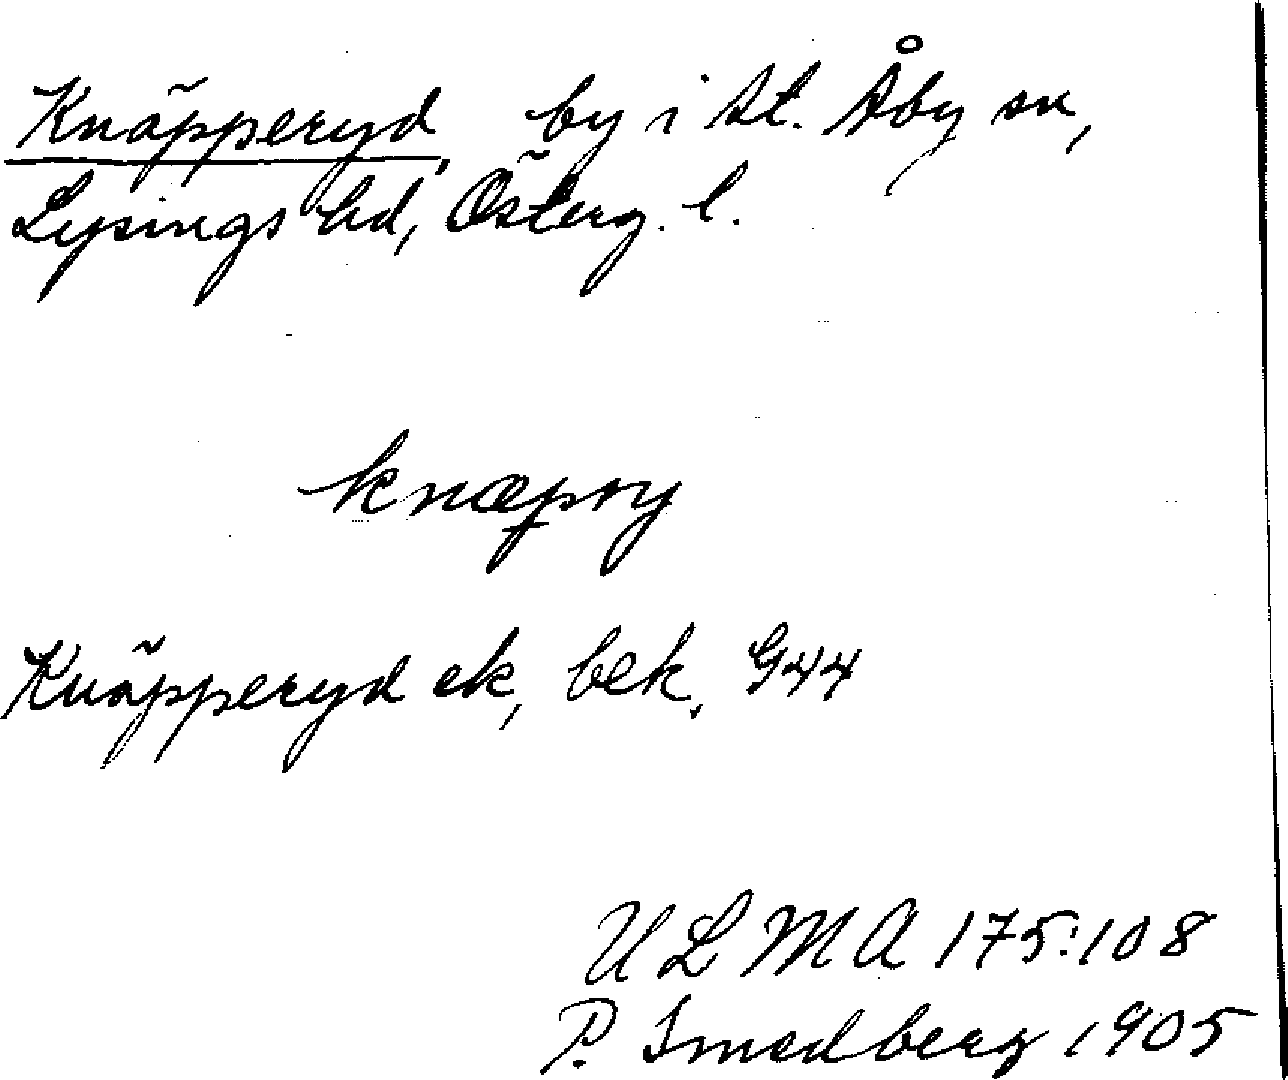 Knäpperyd, by i St. Åby sn,
Lysings hd, Österg. l.
knæpry
Knäpperyd ek, bek. G44
ULMA 175:108
P. Smedberg 1905